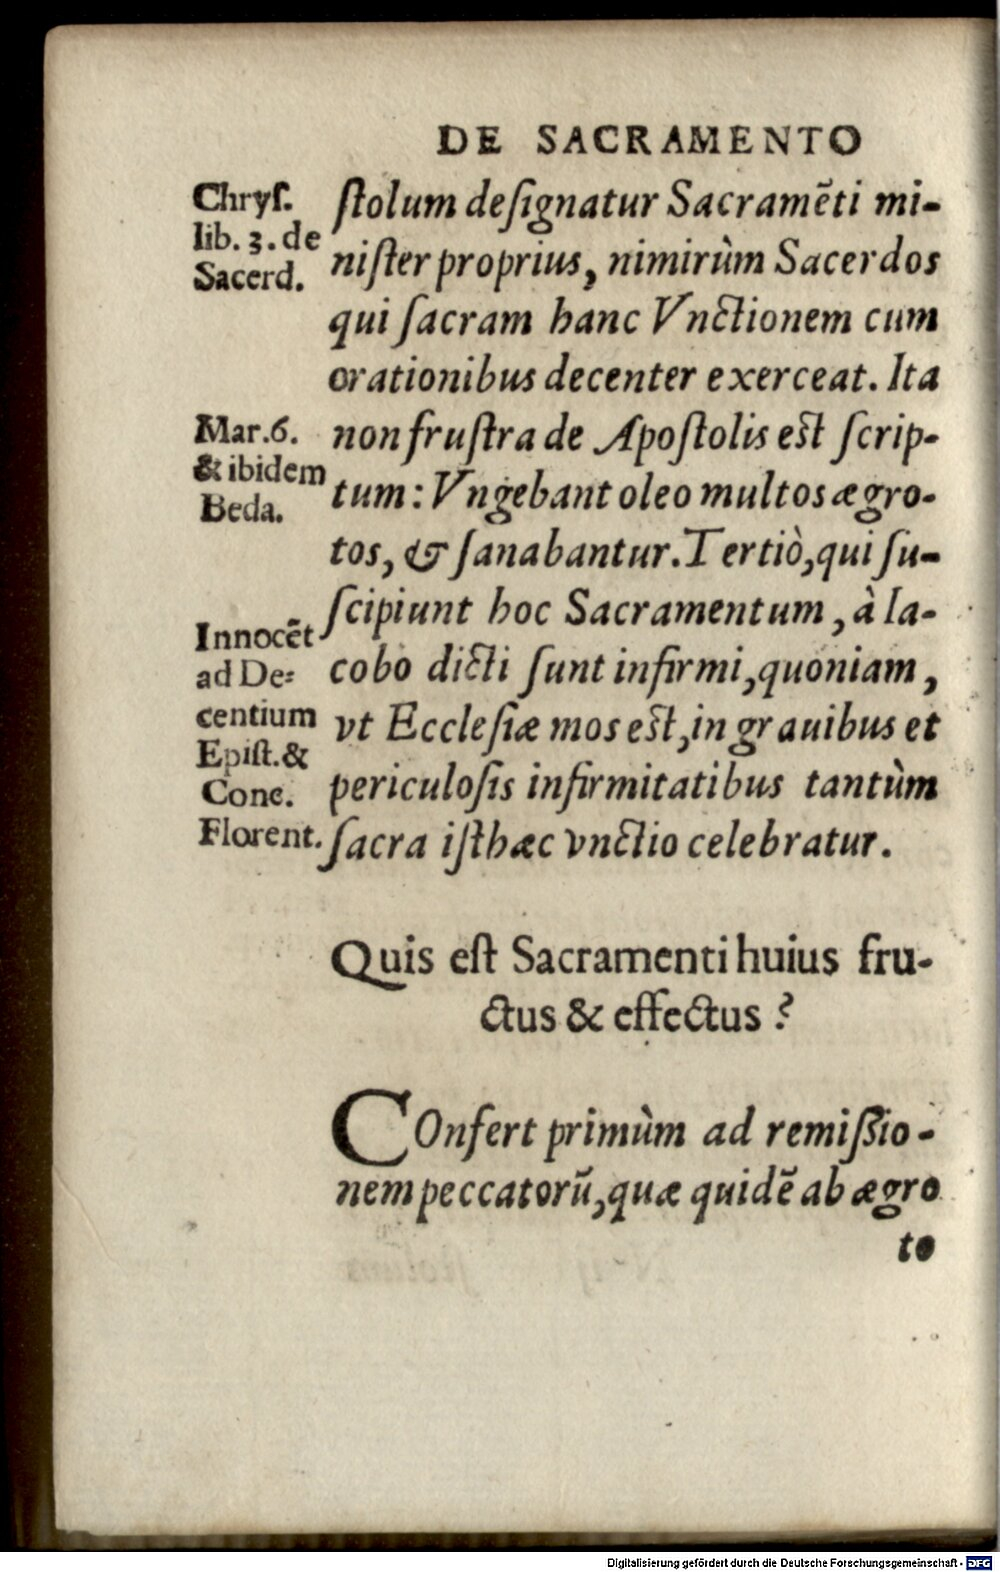 DE SACRAMENTO
Chryſ.
lib. 3. de
Sacerd.
ſtolum deſignatur Sacramēti mi-
niſter proprius, nimirùm Sacerdos
qui ſacram hanc Vnctionem cum
orationibus decenter exerceat. Ita
Mar.6.
& ibidem
Beda.
non fruſtra de Apoſtolis eſt ſcrip-
tum: Vngebant oleo multos ægro-
tos, & ſanabantur. Tertiò, qui ſu-
ſcipiunt hoc Sacramentum, à Ia-
Innocēt
ad De-
centium
Epiſt. &
Conc.
Florent.
cobo dicti ſunt infirmi, quoniam,
vt Eccleſiæ mos eſt, in grauibus et
periculoſis infirmitatibus tantùm
ſacra iſthæc vnctio celebratur.
Quis eſt Sacramenti huius fru-
ctus & effectus?
COnfert primùm ad remißio-
nem peccatorū, quæ quidē ab ægro
to
Digitalisierung gefördert durch die Deutsche Forschungsgemeinschaft - DFG